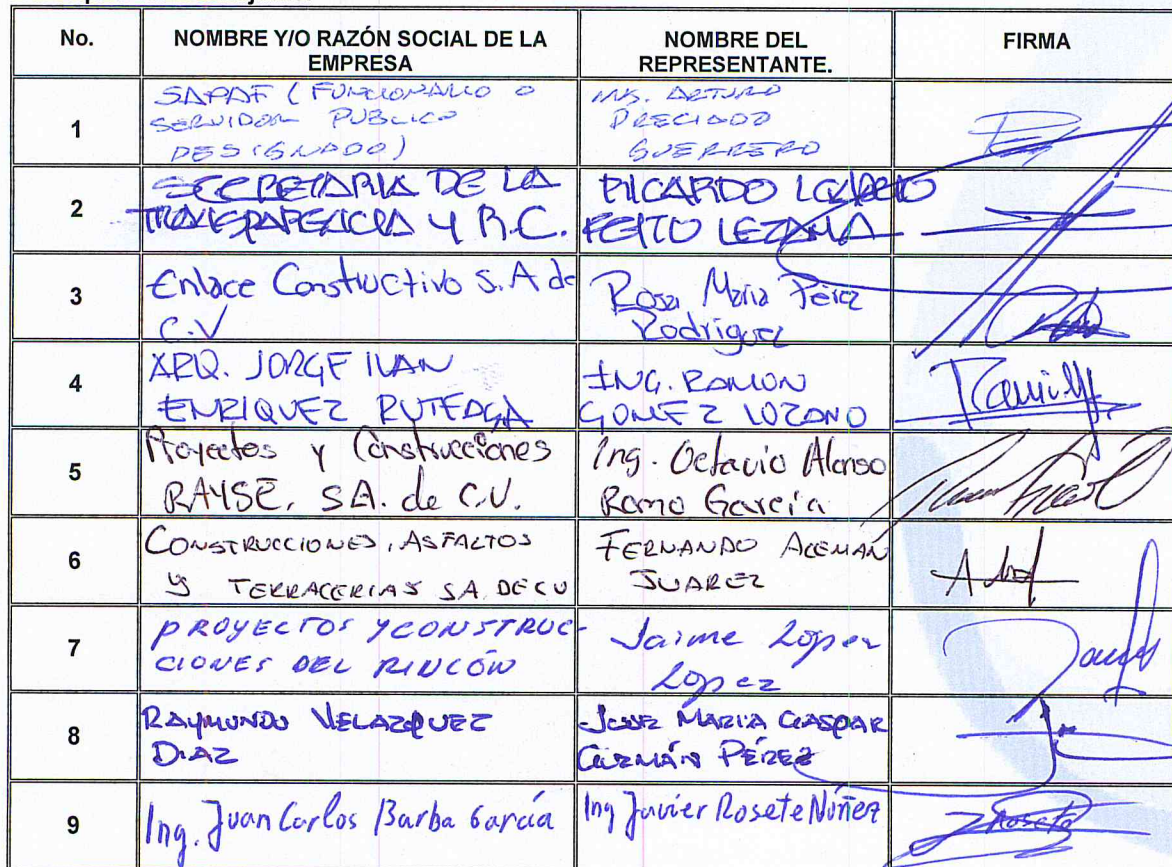 No.
NOMBRE Y/O RAZÓN SOCIAL DE LA
EMPRESA
NOMBRE DEL
REPRESENTANTE.
FIRMA
1
SAPAF (FUNCIONARIO O
SERVIDOR PUBLICO
DESIGNADO)
ING. ARTURO
PRECIADO
GUERRERO
2
SECRETARIA DE LA
TRANSPARENCIA Y R.C.
RICARDO
FEITO LEZAMA
3
Enlace Constructivo S. A de
C.V
Rosa Maria Pérez
Rodriguez
4
ARQ. JORGE IVAN
ENRIQUEZ
ING. RAMON
GOMEZ LOZANO
5
Proyectos y Construcciones
RAYSE, SA. de C.V.
Ing. Octavio Alonso
Ramo García
6
CONSTRUCCIONES, ASFALTOS
Y TERRACERIAS SA DE CV
FERNANDO ALEMÁN
JUAREZ
7
PROYECTOS Y CONSTRUC-
CIONES DEL RINCÓN
Jaime López
López
8
RAYMUNDO VELAZQUEZ
DIAZ
JOSE MARIA GASPAR
GUZMÁN PÉREZ
9
Ing. Juan Carlos Barba García
Ing Javier Rosete Núñez